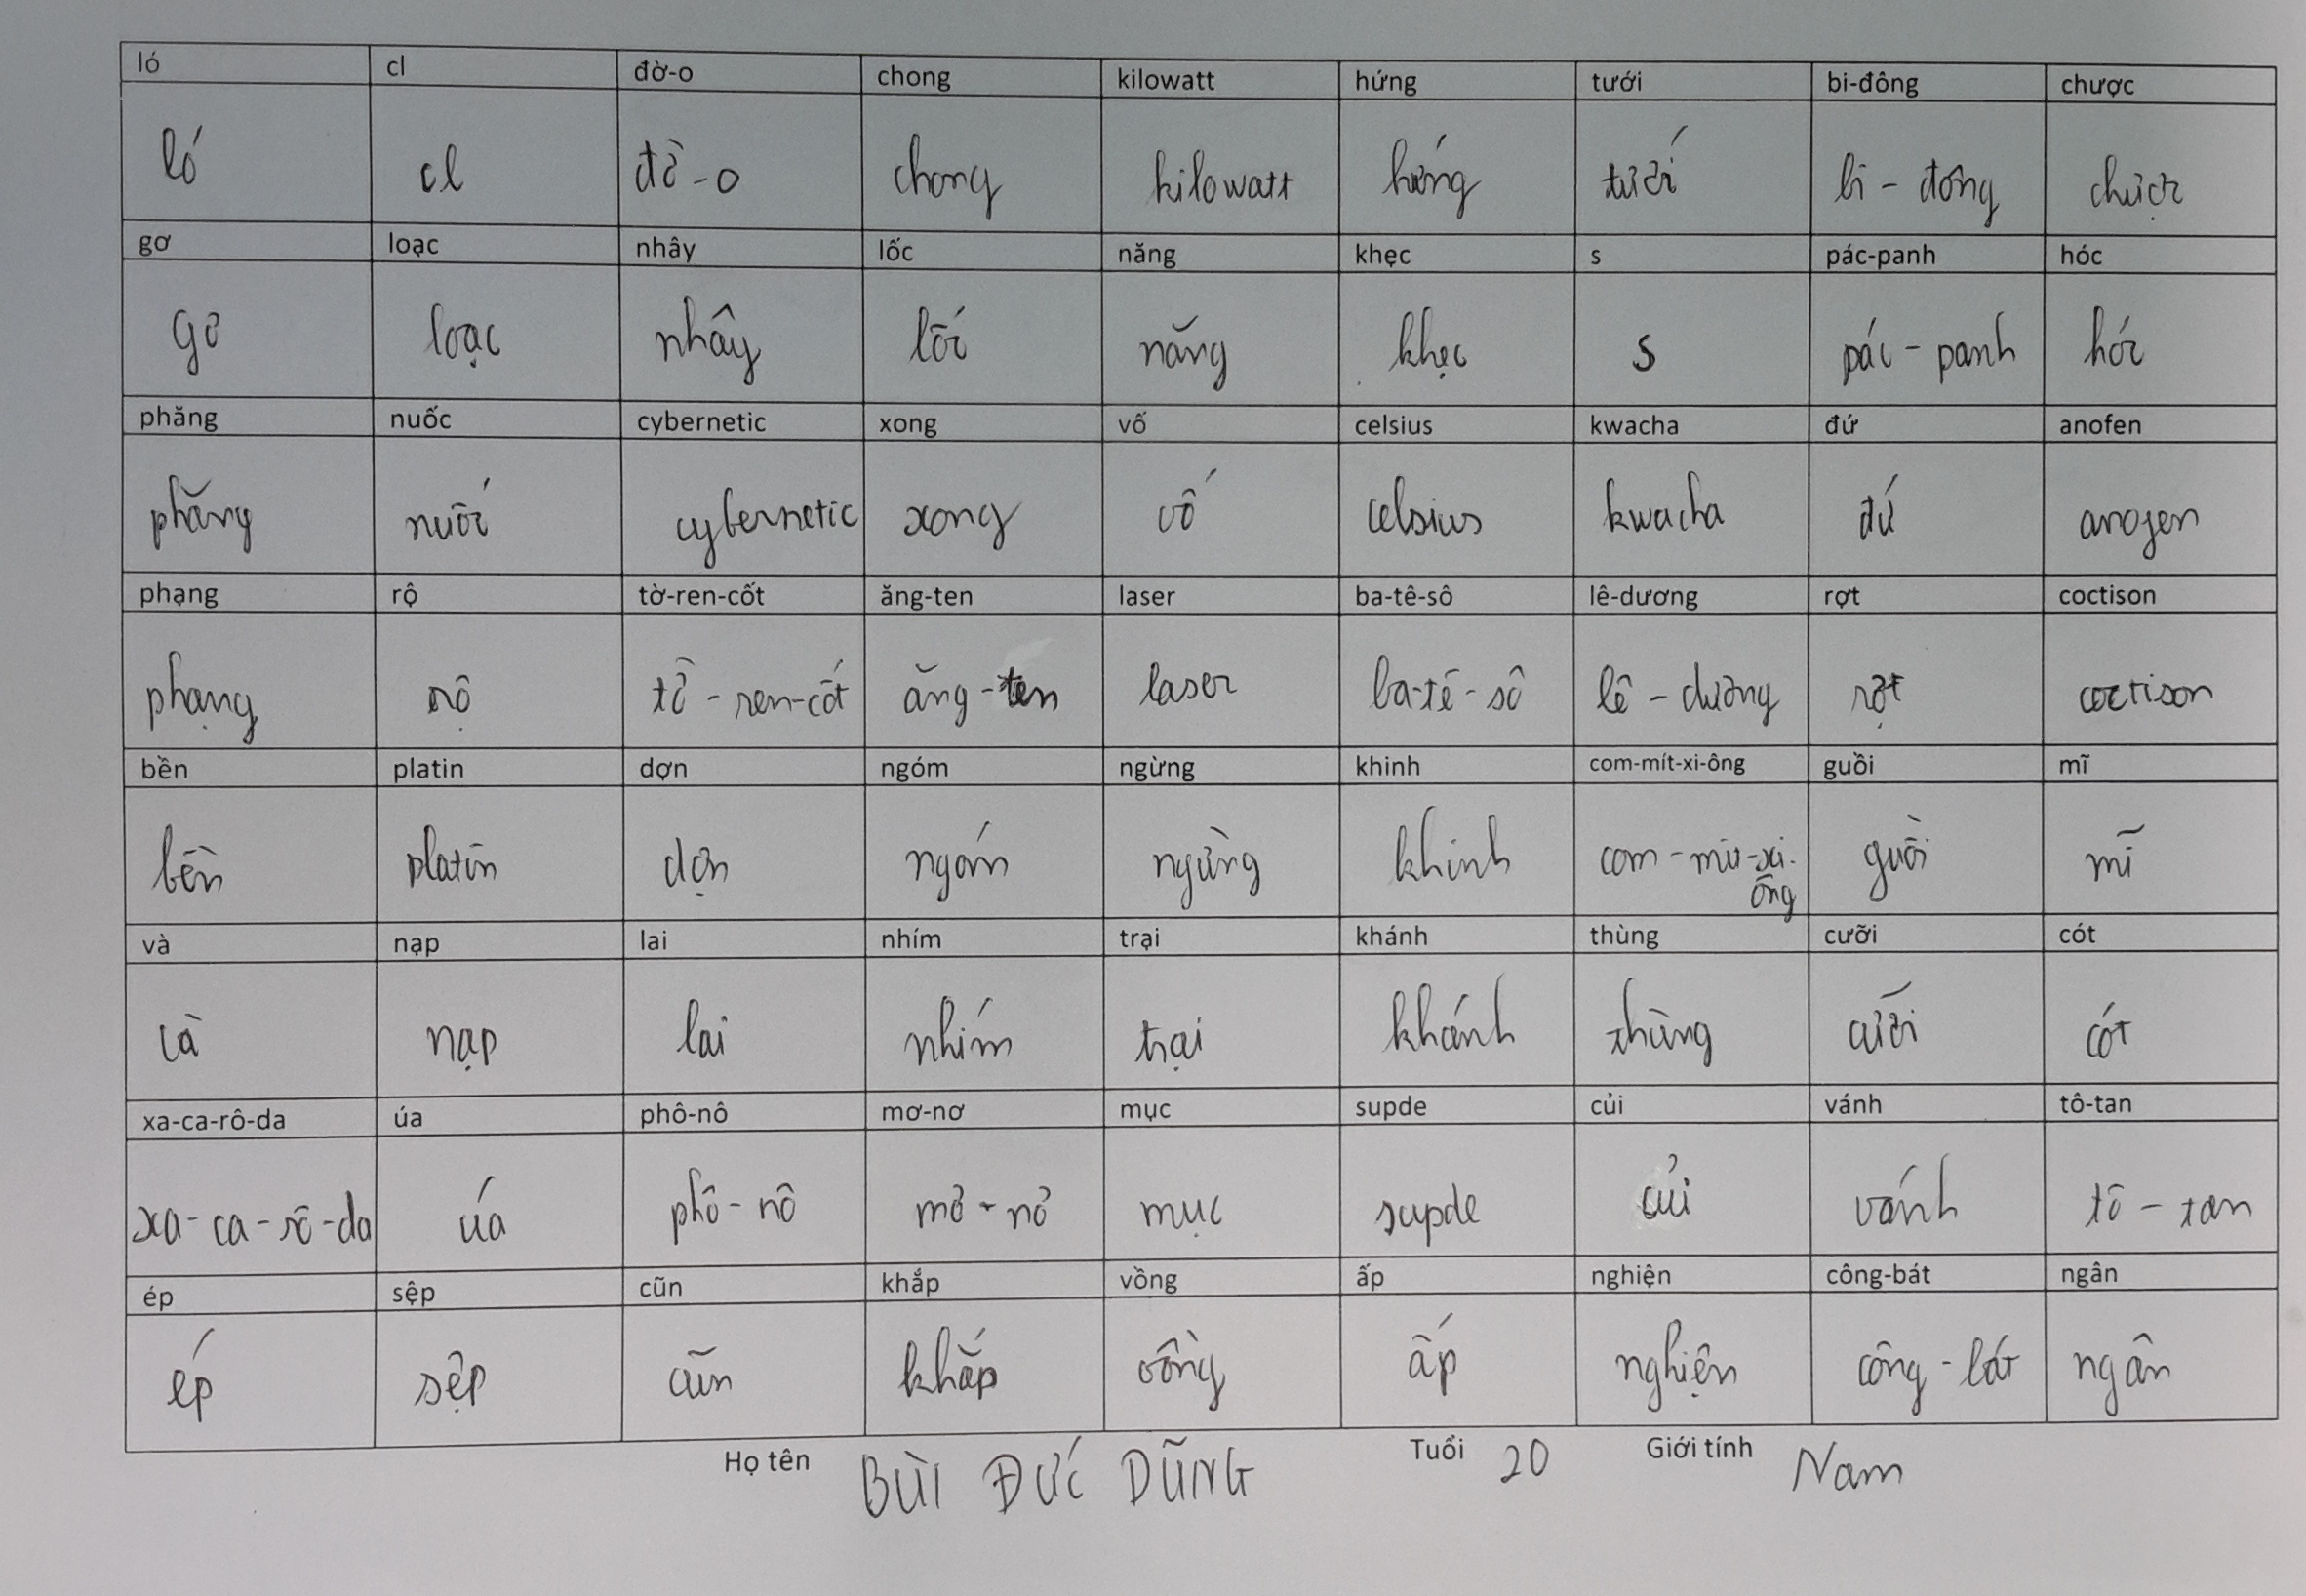 ló cl đờ-o chong kilowatt hứng tưới bi-đông chược
ló cl đờ-o chong kilowatt hứng tưới bi-đông chược
gơ loạc nhây lốc năng khẹc s pác-panh hóc
gơ loạc nhây lốc năng khẹc s pác-panh hóc
phăng nuốc cybernetic xong vố celsius kwacha đứ anofen
phăng nuốc cybernetic xong vố celsius kwacha đứ anofen
phạng rộ tờ-ren-cốt ăng-ten laser ba-tê-sô lê-dương rợt coctison
phạng rộ tờ-ren-cốt ăng-ten laser ba-tê-sô lê-dương rợt coctison
bền platin dợn ngóm ngừng khinh com-mít-xi-ông guồi mĩ
bền platin dợn ngóm ngừng khinh com-mít-xi-ông guồi mĩ
và nạp lai nhím trại khánh thùng cưỡi cót
và nạp lai nhím trại khánh thùng cưỡi cót
xa-ca-rô-da úa phô-nô mơ-nơ mục supde củi vánh tô-tan
xa-ca-rô-da úa phô-nô mơ-nơ mục supde củi vánh tô-tan
ép sệp cũn khắp vồng ấp nghiện công-bát ngân
ép sệp cũn khắp vồng ấp nghiện công-bát ngân
Họ tên BÙI ĐỨC DŨNG Tuổi 20 Giới tính Nam